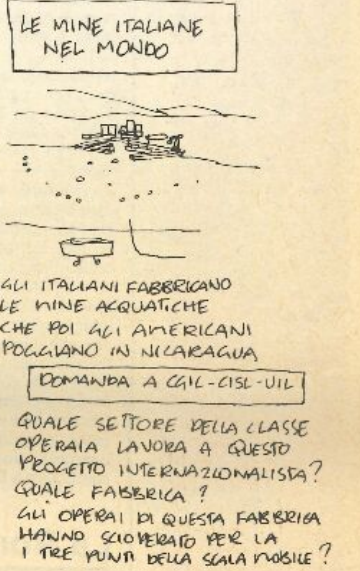 LE MINE ITALIANE
NEL MONDO
GLI ITALIANI FABBRICANO
LE MINE ACQUATICHE
CHE POI GLI AMERICANI
POGGIANO IN NICARAGUA
DOMANDA A CGIL-CISL-UIL
QUALE SETTORE DELLA CLASSE
OPERAIA LAVORA A QUESTO
PROGETTO INTERNAZIONALISTA?
QUALE FABBRICA?
GLI OPERAI DI QUESTA FABBRICA
HANNO SCIOPERATO PER LA
I TRE PUNTI DELLA SCALA MOBILE?